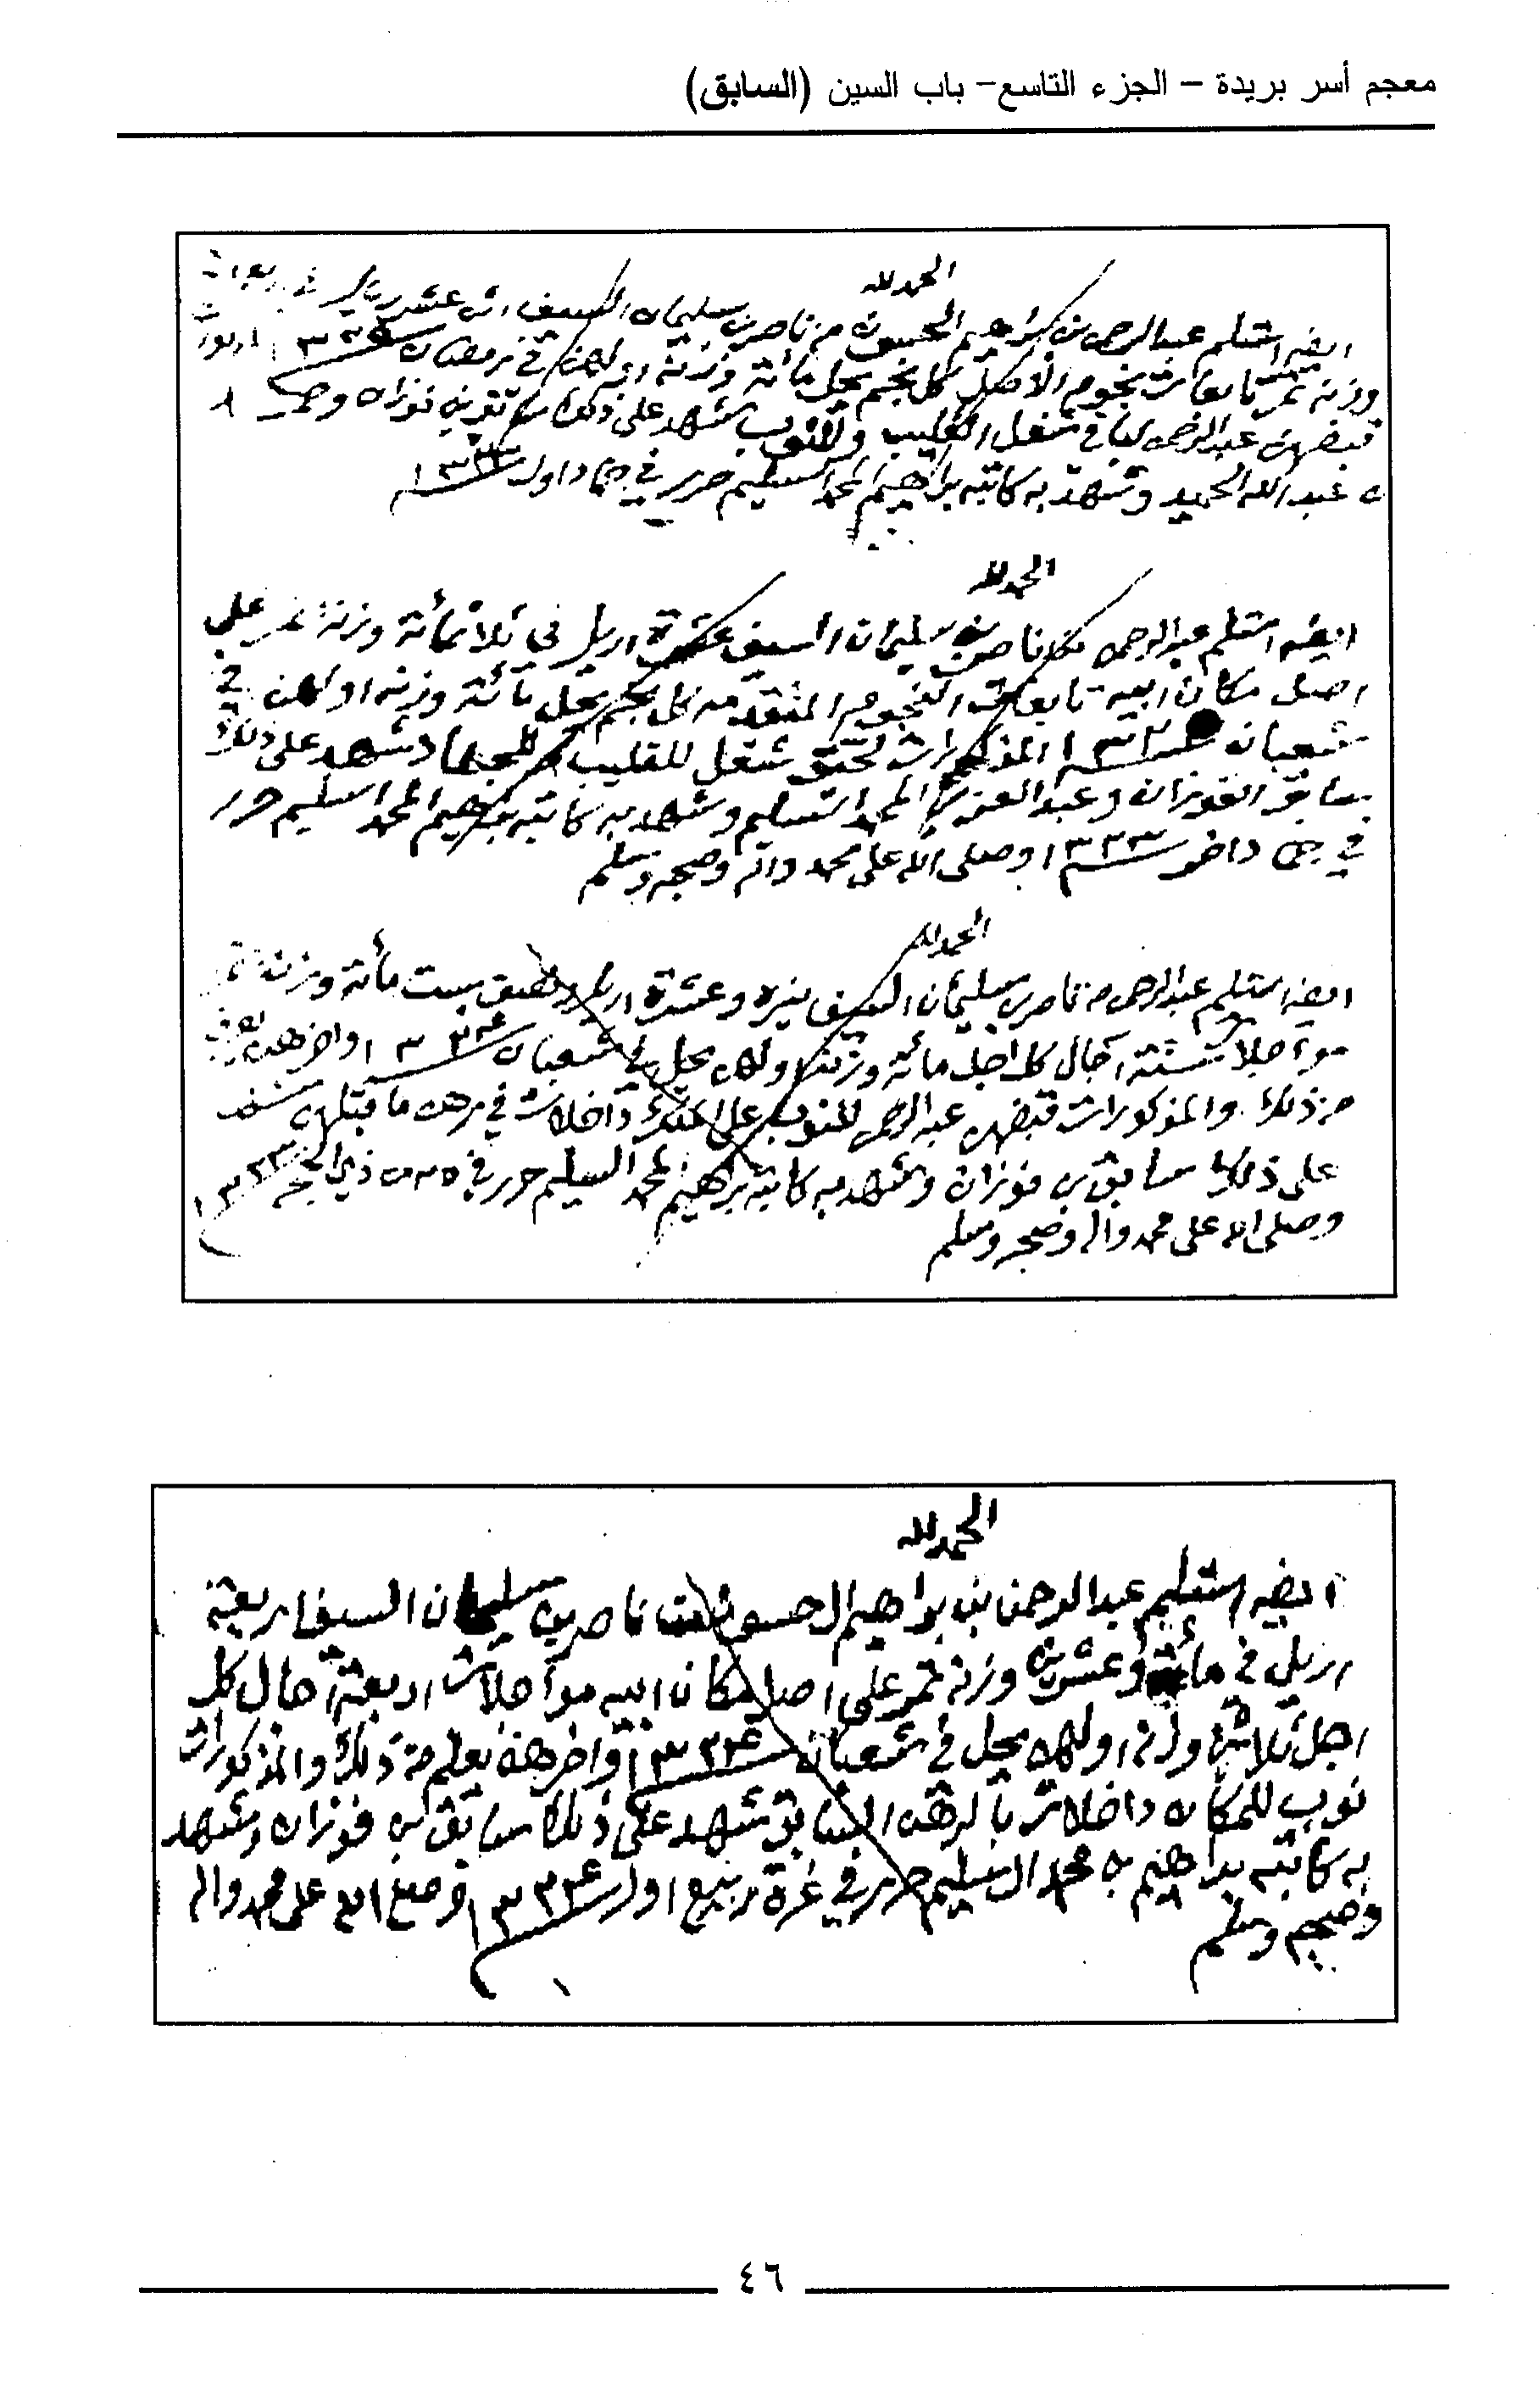 معجم أسر بريدة – الجزء التاسع– باب السين (السابق)
الحمد لله
ايضا استلم عبدالرحمن بن براهيم الحسون من ناصر بن سليمان السيف عشر ريال في
وزنة تمر تابعات نجوم الاصل كل نجم يحل مائة وزنة اولهن في رمضان
قبضهن عبدالرحمن في شغل القليب شهد على ذلك سابق بن فوزان
بن عبد الله الحميد وشهد به كاتبه براهيم المحمد السليم حرر في جماد اول ١٣٣٣
الحمد لله
ايضا استلم عبدالرحمن من ناصر بن سليمان السيف عشرة اريل في ثلاثمائة وزنة تمر على
اصل مكان ابيه تابعات النجوم المتقدمه كل نجم يحل مائة وزنه اولهن في
شعبان المذكورات لحق شغل للقليب شهد على ذلك
سابق الفوزان وعبد العزيز المحمد السليم وشهد به كاتبه براهيم المحمد السليم حرر
في جماد اخر ١٣٣٣ وصلى الله على محمد واله وصحبه وسلم
الحمد لله
ايضا استلم عبدالرحمن من ناصر بن سليمان السيف نيره وعشرة اريل بست مائة وزنة تمر
مؤآجلات ستة آجال كل اجل مائة وزنة اولهن يحل في شعبان ١٣٣٤ واخرهن يعرف
من ذلك والمذكورات قبضهن عبدالرحمن للنوب داخلات في رهن ما قبلهن شهد
على ذلك سابق بن فوزان وشهد به كاتبه براهيم المحمد السليم حرر في ذي الحجة ١٣٣٣
وصلى الله على محمد واله وصحبه وسلم
الحمد لله
ايضا استلم عبدالرحمن بن براهيم الحسون من ناصر بن سليمان السيف اربعة
اريل في مائة وعشرين وزنة تمر على اصل مكان ابيه مؤآجلات اربعة آجال كل
اجل ثلاثين وزنه اولهن يحل في شعبان ١٣٣٤ واخرهن يعلم من ذلك والمذكورات
نوب للمكان داخلات بالرهن السابق شهد على ذلك سابق بن فوزان وشهد
به كاتبه براهيم بن محمد السليم حرر في غرة ربيع اول ١٣٣٤ وصلى الله على محمد واله
وصحبه وسلم
٤٦